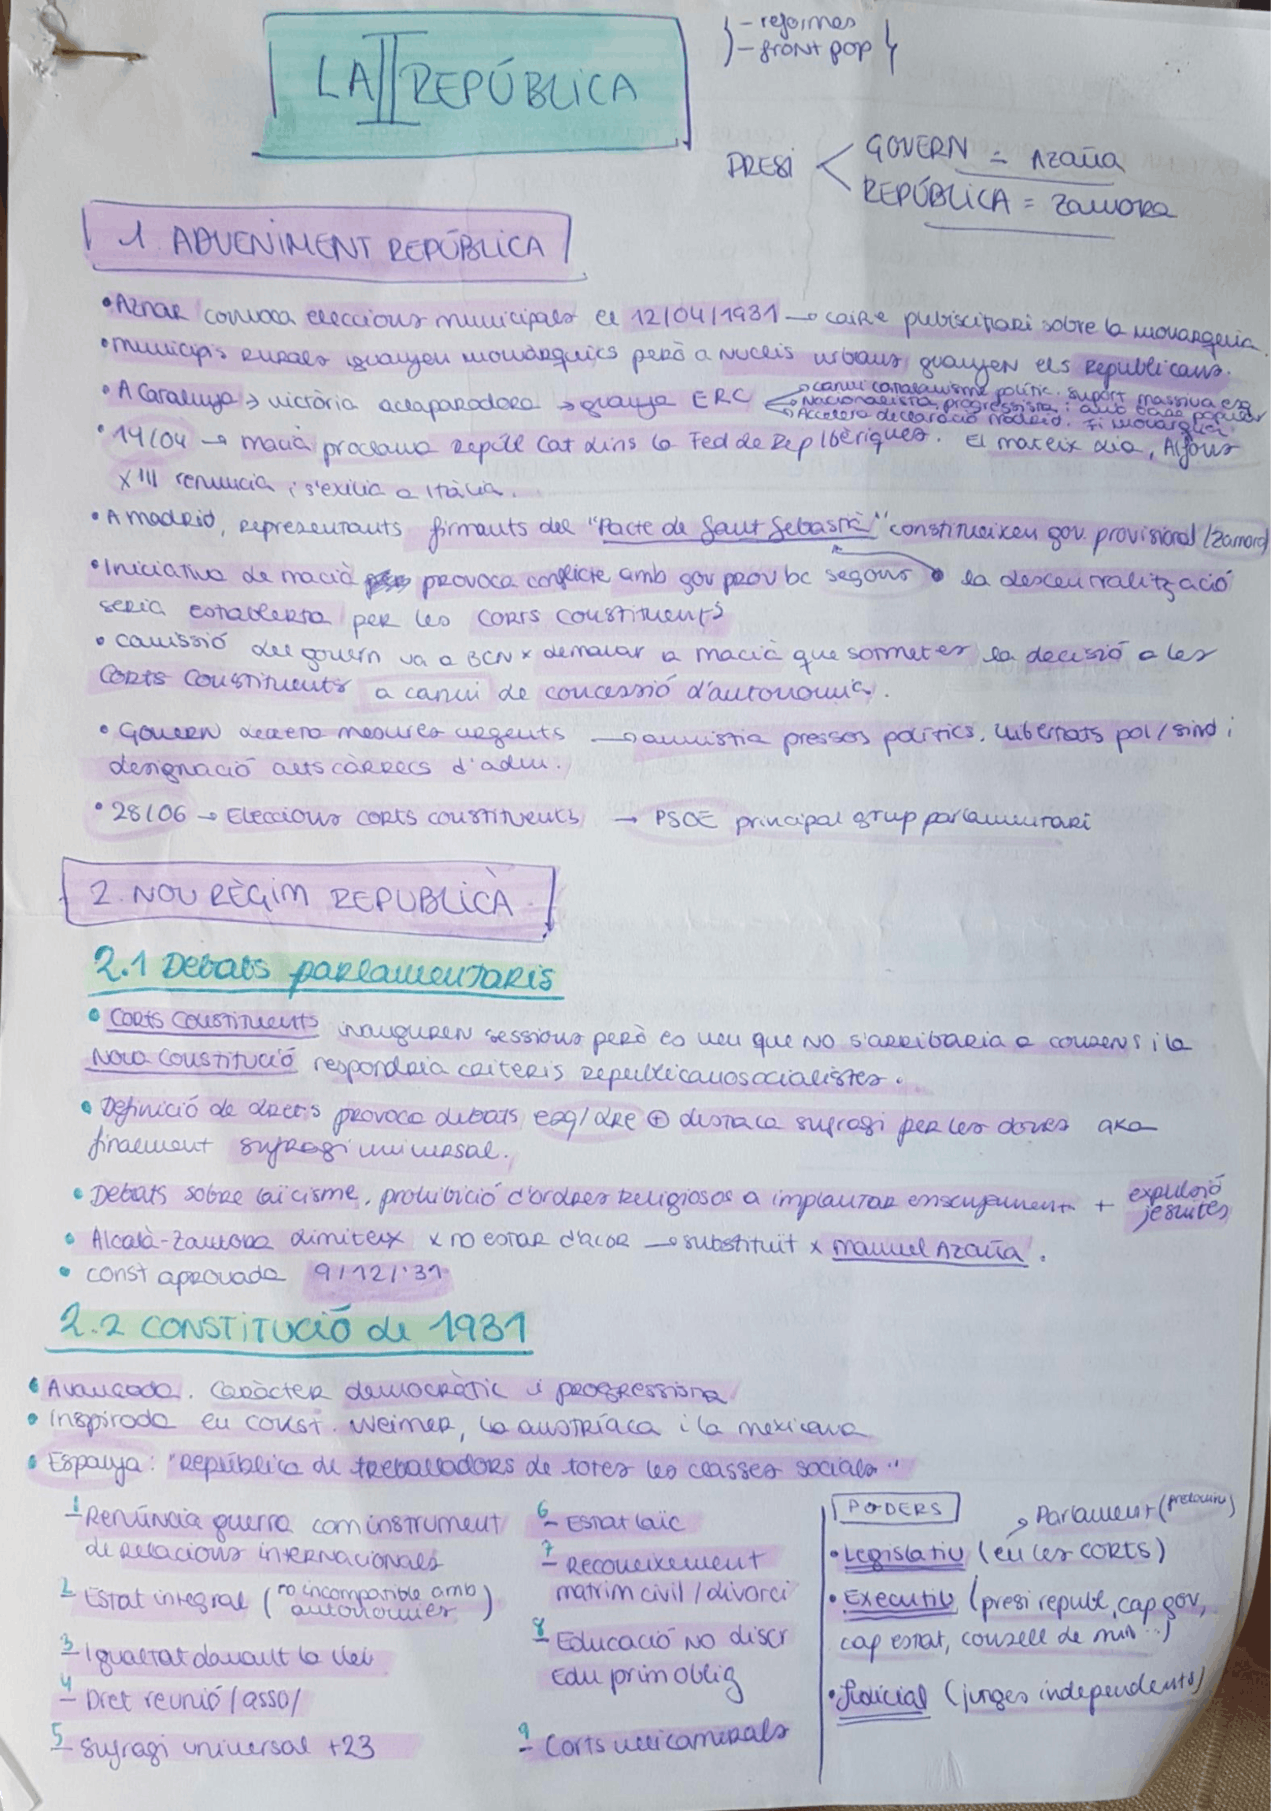 LA II REPÚBLICA
- reformes
- front pop
PRESI
GOVERN = Azaña
REPÚBLICA = Zamora
1. ADVENIMENT REPÚBLICA
• Aznar convoca eleccions municipals el 12/04/1931 → caire plebiscitari sobre la monarquia.
• Municipis rurals guanyen monàrquics però a nuclis urbans guanyen els Republicans.
• A Catalunya → victòria aclaparadora → guanya ERC
→ canvi catalanisme polític. Suport massiva ERC
→ Nacionalista, progressista i amb base popular
→ Accelera declaració Madrid. Fi monarquia
• 14/04 → Macià proclama Repúl Cat dins la Fed de Rep Ibèriques. El mateix dia, Alfons
XIII renuncia i s'exilia a Itàlia.
• A Madrid, representants firmants del "Pacte de Sant Sebastià" constitueixen gov. provisional (Zamora)
• Iniciativa de Macià provoca conflicte amb gov prov bc segons la descentralització
seria establerta per les corts constituents
• Comissió del govern va a BCN x demanar a Macià que sotmetés la decisió a les
Corts Constituents a canvi de concessió d'autonomia.
• Govern decreta mesures urgents → amnistia pressos polítics, llibertats pol/sind i
designació alts càrrecs d'adm.
• 28/06 → Eleccions corts constituents → PSOE principal grup parlamentari
2. NOU RÈGIM REPUBLICÀ
2.1 Debats parlamentaris
• Corts Constituents inauguren sessions però es veu que no s'arribaria a consens i la
Nova Constitució respondria criteris republicanosocialistes.
• Definició de drets provoca debats esq/dre ⊕ destaca sufragi per les dones aka
finalment sufragi universal.
• Debats sobre laïcisme, prohibició d'ordres religiosos a implantar ensenyament + expulsió
jesuïtes
• Alcalà-Zamora dimiteix x no estar d'acor → substituït x Manuel Azaña.
• const aprovada 9/12/'31
2.2 CONSTITUCIÓ de 1931
• Avançada. Caràcter democràtic i progressista
• Inspirada en const. Weimer, la austríaca i la mexicana
• Espanya: "República de treballadors de totes les classes socials"
1- Renúncia guerra com instrument
de relacions internacionals
2- Estat integral (no incompatible amb
autonomies)
3- Igualtat davant la llei
4- Dret reunió/asso/
5- Sufragi universal +23
6- Estat laic
7- Reconeixement
matrim civil / divorci
8- Educació no discr
Edu prim oblig
9- Corts unicamerals
PODERS
→ Parlament
• Legislatiu (en les CORTS)
• Executiu (presi republ, cap gov,
cap estat, consell de min...)
• Judicial (jutges independents)